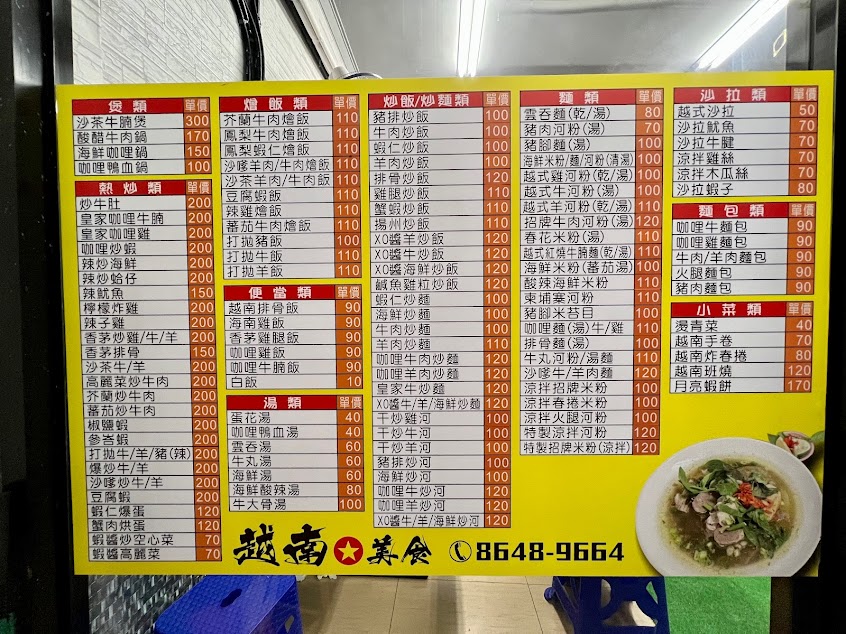 煲類 單價
沙茶牛腩煲 300
酸醋牛肉鍋 170
海鮮咖哩鍋 150
咖哩鴨血鍋 100
熱炒類 單價
炒牛肚 200
皇家咖哩牛腩 200
皇家咖哩雞 200
咖哩炒蝦 200
辣炒海鮮 200
辣炒蛤仔 200
辣魷魚 150
檸檬炸雞 200
辣子雞 200
香茅炒雞/牛/羊 200
香茅排骨 150
沙茶牛/羊 200
高麗菜炒牛肉 200
芥蘭炒牛肉 200
蕃茄炒牛肉 200
椒鹽蝦 200
參峇蝦 200
打拋牛/羊/豬(辣) 200
爆炒牛/羊 200
沙嗲炒牛/羊 200
豆腐蝦 200
蝦仁爆蛋 120
蟹肉烘蛋 120
蝦醬炒空心菜 70
蝦醬高麗菜 70
燴飯類 單價
芥蘭牛肉燴飯 110
鳳梨牛肉燴飯 110
鳳梨蝦仁燴飯 110
沙嗲羊肉/牛肉燴飯 110
沙茶羊肉/牛肉飯 110
豆腐蝦飯 110
辣雞燴飯 110
蕃茄牛肉燴飯 110
打拋豬飯 100
打拋牛飯 110
打拋羊飯 110
便當類 單價
越南排骨飯 90
海南雞飯 90
香茅雞腿飯 90
咖哩雞飯 90
咖哩牛腩飯 90
白飯 10
湯類 單價
蛋花湯 40
咖哩鴨血湯 40
雲吞湯 60
牛丸湯 60
海鮮湯 60
海鮮酸辣湯 80
牛大骨湯 100
炒飯/炒麵類 單價
豬排炒飯 100
牛肉炒飯 100
蝦仁炒飯 100
羊肉炒飯 100
排骨炒飯 120
雞腿炒飯 110
蟹蝦炒飯 110
揚州炒飯 110
XO醬羊炒飯 120
XO醬牛炒飯 120
XO醬海鮮炒飯 120
鹹魚雞粒炒飯 120
蝦仁炒麵 100
海鮮炒麵 100
牛肉炒麵 100
羊肉炒麵 110
咖哩牛肉炒麵 120
咖哩羊肉炒麵 120
皇家牛炒麵 120
XO醬牛/羊/海鮮炒麵 120
干炒雞河 100
干炒牛河 100
干炒羊河 100
豬排炒河 100
海鮮炒河 100
咖哩牛炒河 120
咖哩羊炒河 120
XO醬牛/羊/海鮮炒河 120
麵類 單價
雲吞麵(乾/湯) 80
豬肉河粉(湯) 70
豬腳麵(湯) 100
海鮮米粉/麵/河粉(清湯) 100
越式雞河粉(乾/湯) 100
越式牛河粉(湯) 100
越式羊河粉(乾/湯) 110
招牌牛肉河粉(湯) 120
春花米粉(湯) 110
越式紅燒牛腩麵(乾/湯) 110
海鮮米粉(蕃茄湯) 100
酸辣海鮮米粉 110
柬埔寨河粉 110
豬腳米苔目 100
咖哩麵(湯)牛/雞 110
排骨麵(湯) 100
牛丸河粉/湯麵 110
沙嗲牛/羊肉麵 120
涼拌招牌米粉 100
涼拌春捲米粉 100
涼拌火腿河粉 100
特製涼拌河粉 120
特製招牌米粉(涼拌) 120
沙拉類 單價
越式沙拉 50
沙拉魷魚 70
沙拉牛腱 70
涼拌雞絲 70
涼拌木瓜絲 70
沙拉蝦子 80
麵包類 單價
咖哩牛麵包 90
咖哩雞麵包 90
牛肉/羊肉麵包 90
火腿麵包 90
豬肉麵包 90
小菜類 單價
燙青菜 40
越南手卷 70
越南炸春捲 80
越南班燒 120
月亮蝦餅 170
越南美食 8648-9664